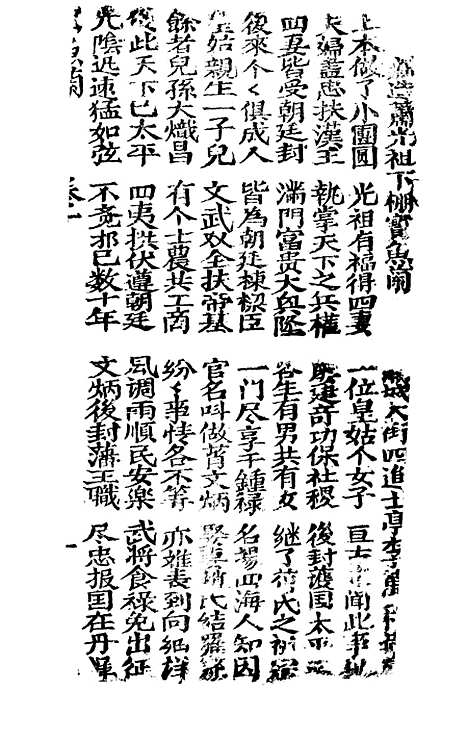 蕭光祖下棚賣魚 大街四追士亭李萬
上本做了小團圓 光祖有福得四妻 一位皇姑个女子 亘古 聞此事
夫婦盡忠扶漢王 執掌天下之兵權 建奇功保社稷 後封護国太
四妻皆受朝廷封 滿門富贵大 墜 各生有男共有女 継了 氏之
後來个々俱成人 皆為朝廷棟樑臣 一门尽享千鍾禄 名揚四海人知因
皇姑親生一子兒 文武双全扶帝基 官名叫做萧文炳 氏結羅
餘者兒孫大熾昌 有个士農共工商 紛々事情各不等 亦难表到向細詳
從此天下已太平 四夷拱伏遵朝廷 風调雨順民安樂 武將食禄免出征
光陰迅速猛如弦 不竟却已数十年 文炳後封藩王職 尽忠报国在丹
蘭 卷一 一